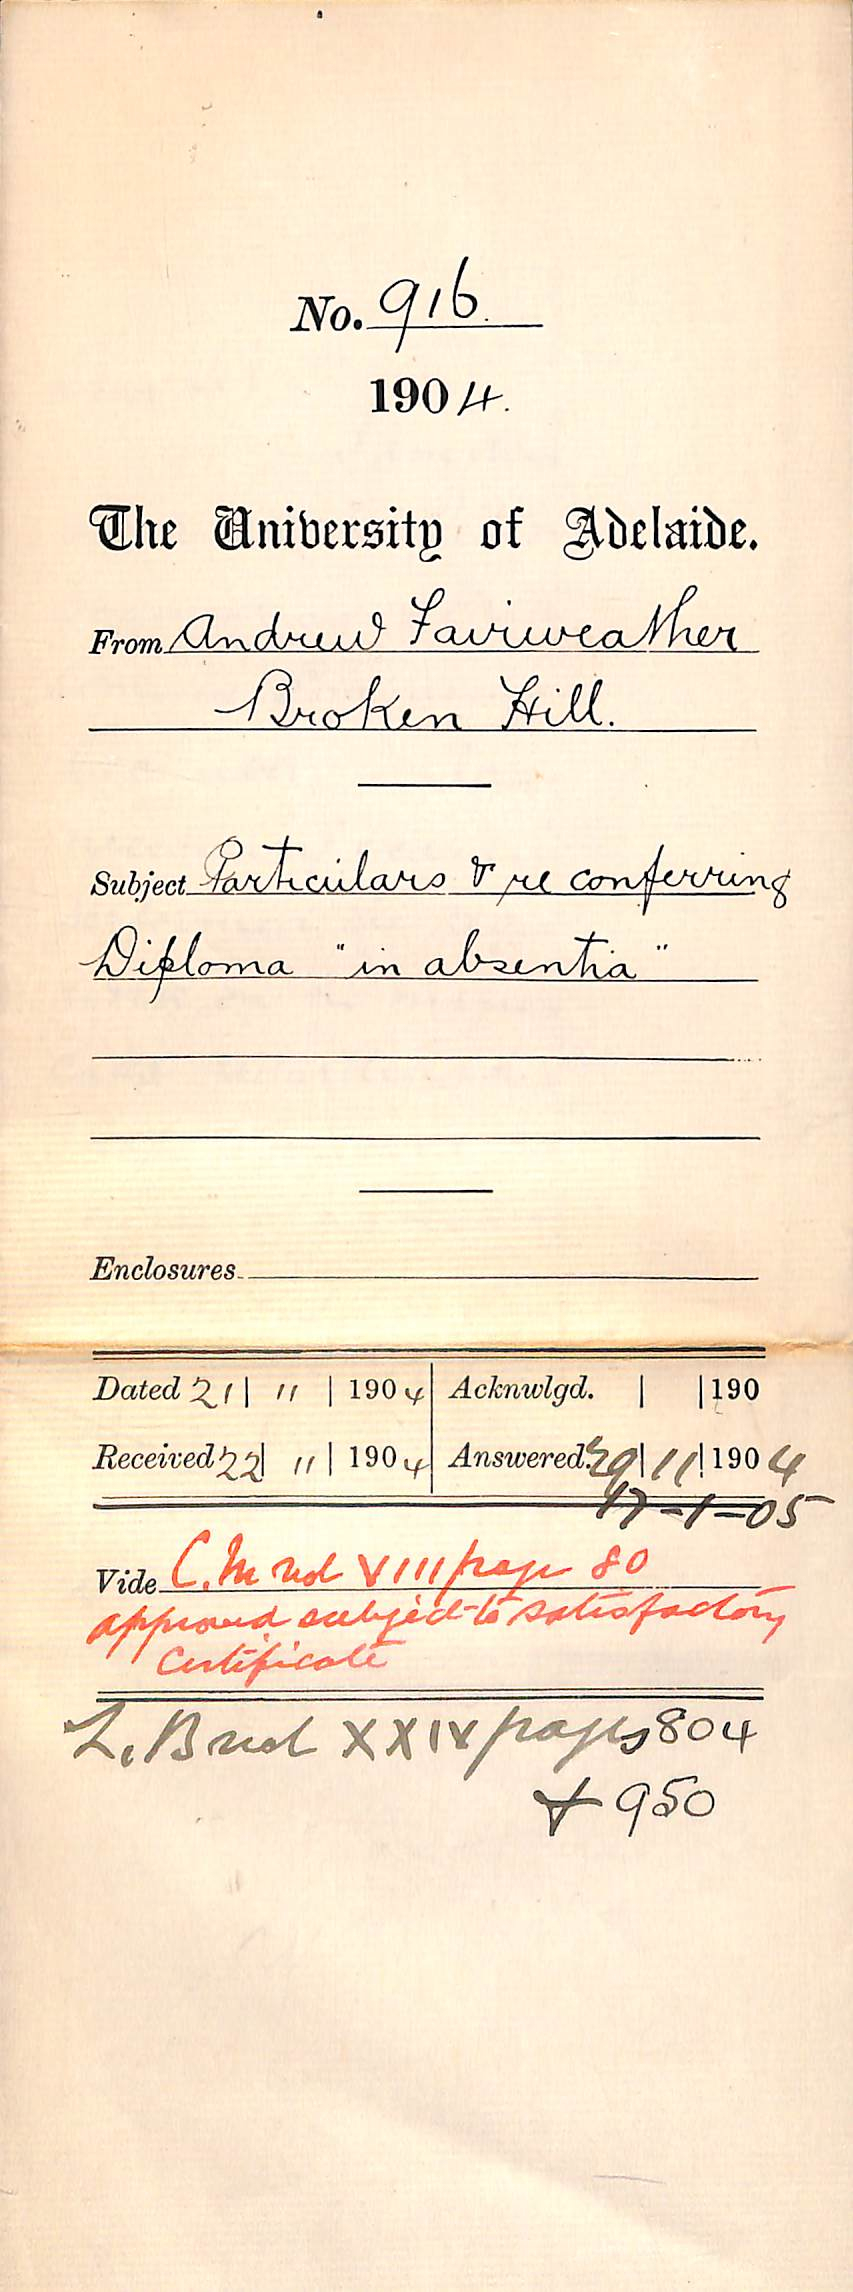 No. 916.
1904.
The University of Adelaide.
From Andrew Fairweather
Broken Hill.
Subject Particulars & re conferring
Diploma "in absentia"
Enclosures
Dated 21 | 11 | 1904 Acknwlgd. | | 190
Received 22 | 11 | 1904 Answered. 29 | 11 | 1904
17-1-05
Vide C.M vol VIII page 80
approved subject to satisfactory
certificate
L.B vol XXIV pages 804
& 950